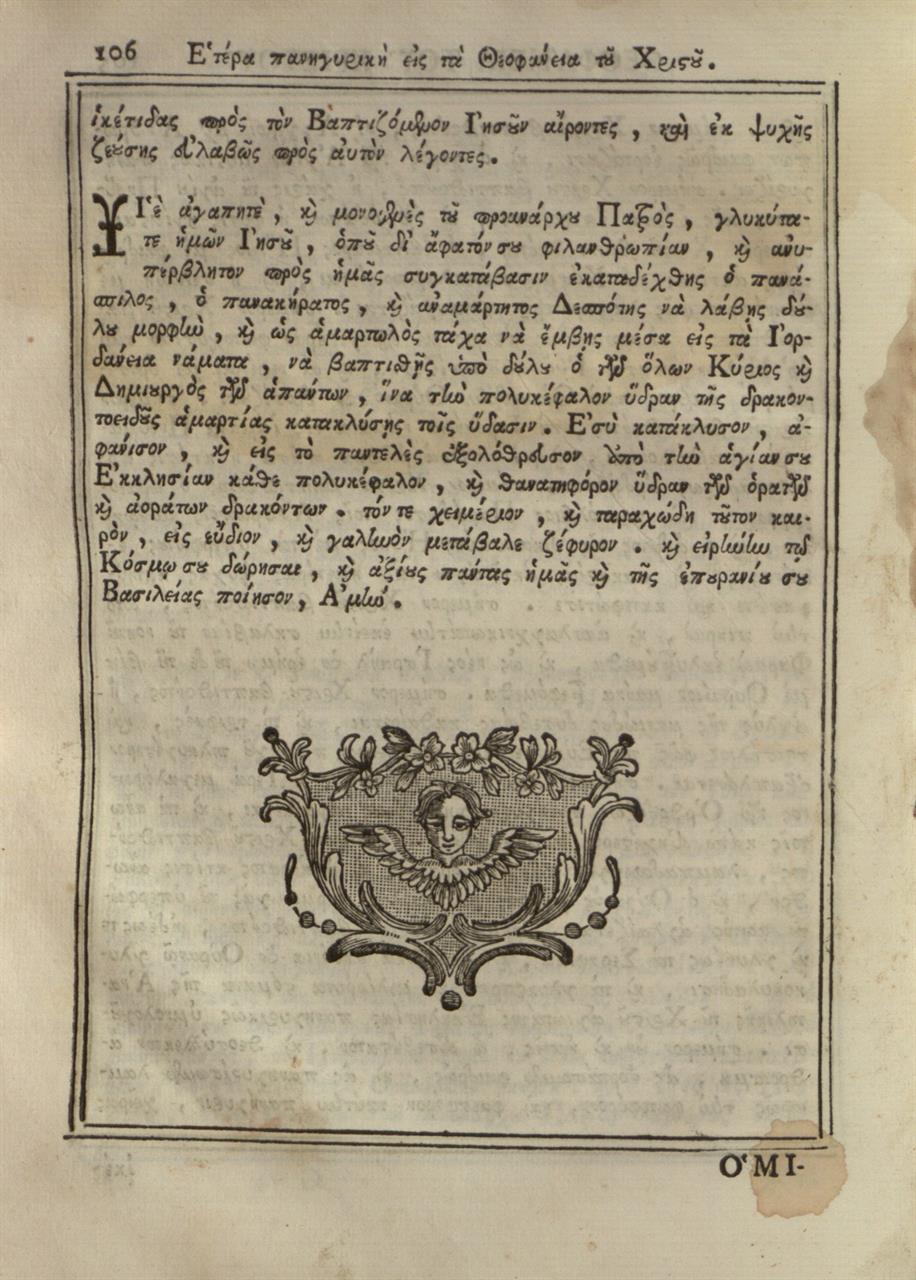 106 Ἑτέρα πανηγυρικὴ εἰς τὰ Θεοφάνεια τοῦ Χριστοῦ.
ἱκέτιδας πρὸς τὸν Βαπτιζόμενον Ἰησοῦν αἴροντες, καὶ ἐκ ψυχῆς
ζεούσης εὐλαβῶς πρὸς αὐτὸν λέγοντες.
Υἱὲ ἀγαπητὲ, καὶ μονογενὲς τοῦ προανάρχου Πατρὸς, γλυκύτα-
τε ἡμῶν Ἰησοῦ, ὁποῦ δι' ἄφατόν σου φιλανθρωπίαν, καὶ ἀνυ-
πέρβλητον πρὸς ἡμᾶς συγκατάβασιν ἐκαταδέχθης ὁ πανά-
σπιλος, ὁ πανακήρατος, καὶ ἀναμάρτητος Δεσπότης νὰ λάβῃς δού-
λου μορφὴν, καὶ ὡς ἁμαρτωλὸς τάχα νὰ ἔμβῃς μέσα εἰς τὰ Ἰορ-
δάνεια νάματα, νὰ βαπτισθῇς ὑπὸ δούλου ὁ τῶν ὅλων Κύριος καὶ
Δημιουργὸς τῶν ἁπάντων, ἵνα τὴν πολυκέφαλον ὕδραν τῆς δρακον-
τοειδοῦς ἁμαρτίας κατακλύσῃς τοῖς ὕδασιν. Ἐσὺ κατάκλυσον, ἀ-
φάνισον, καὶ εἰς τὸ παντελὲς ἐξολόθρευσον ἀπὸ τὴν ἁγίαν σου
Ἐκκλησίαν κάθε πολυκέφαλον, καὶ θανατηφόρον ὕδραν τῶν ὁρατῶν
καὶ ἀοράτων δρακόντων. τόν τε χειμέριον, καὶ ταραχώδη τοῦτον και-
ρὸν, εἰς εὔδιον, καὶ γαληνὸν μετάβαλε ζέφυρον. καὶ εἰρήνην τῷ
Κόσμῳ σου δώρησαι, καὶ ἀξίους πάντας ἡμᾶς καὶ τῆς ἐπουρανίου σου
Βασιλείας ποίησον, Ἀμήν.
Ὁ ΜΙ-